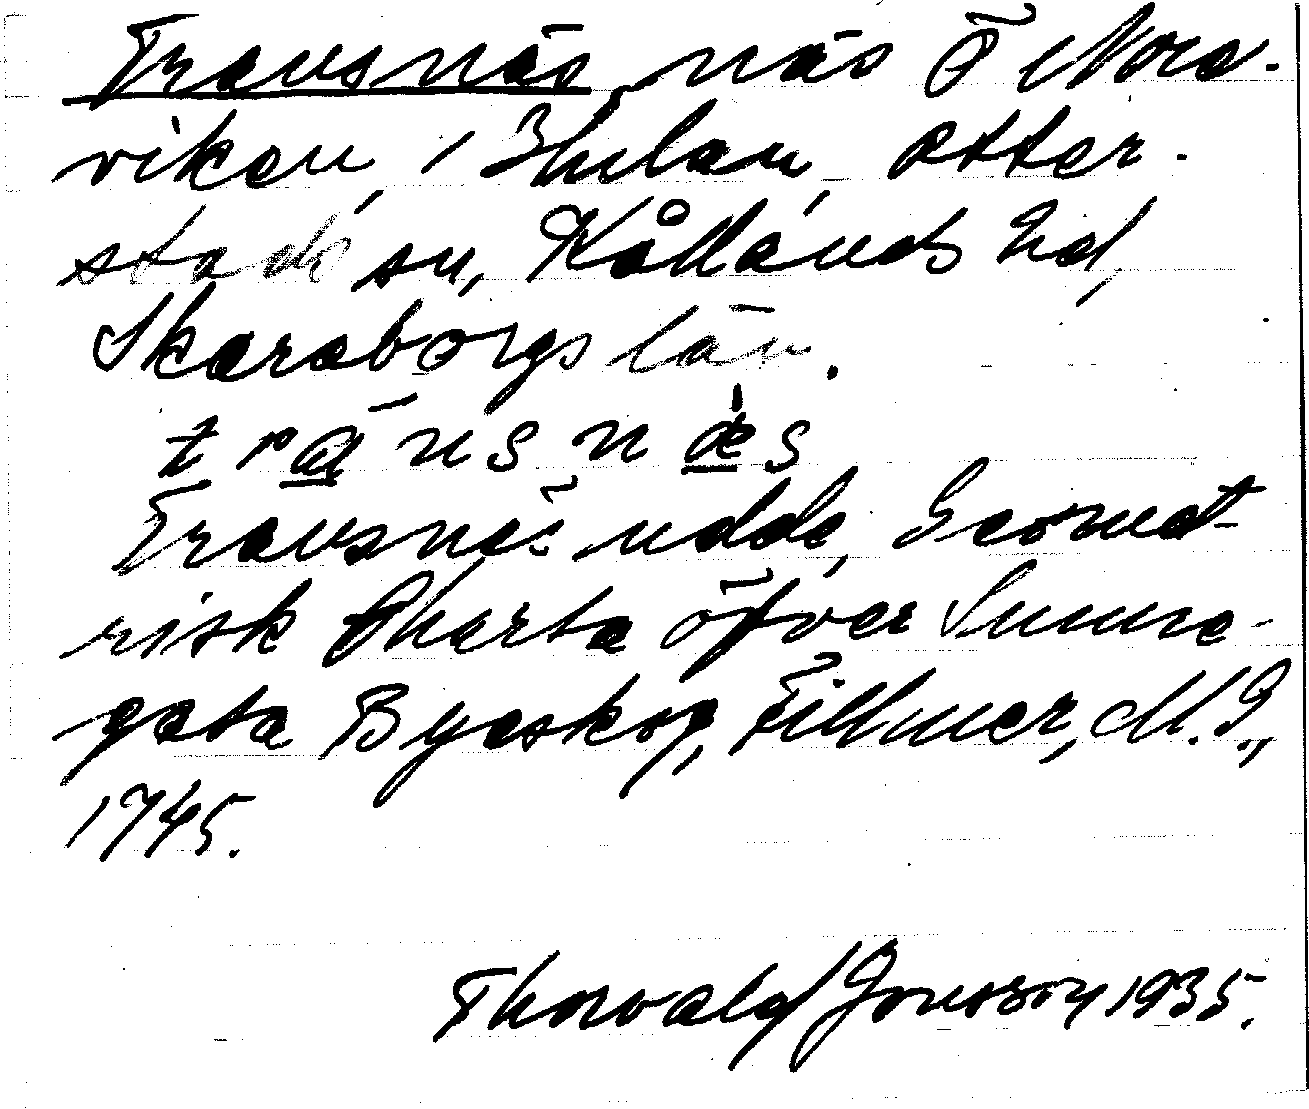 Travsnäs, näs Ö Nora-
viken, i Ekelan, Otter-
stad sn, Kållands hd,
Skaraborgs län.
t r ā u s n æ s
Travsnäs udde, Geomet-
risk Charta öfver Sunna-
gata Byaskog, Fillmer, M. G.,
1745.
Thorvald Jonsson 1935.